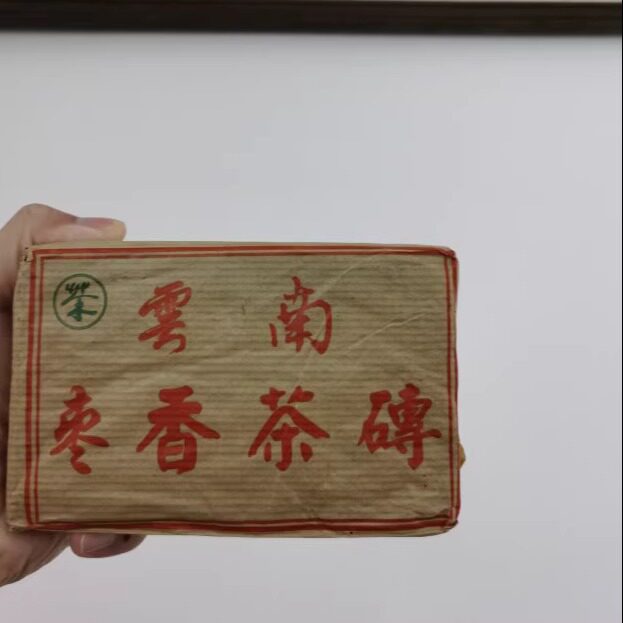 茶
雲南
枣香茶磚